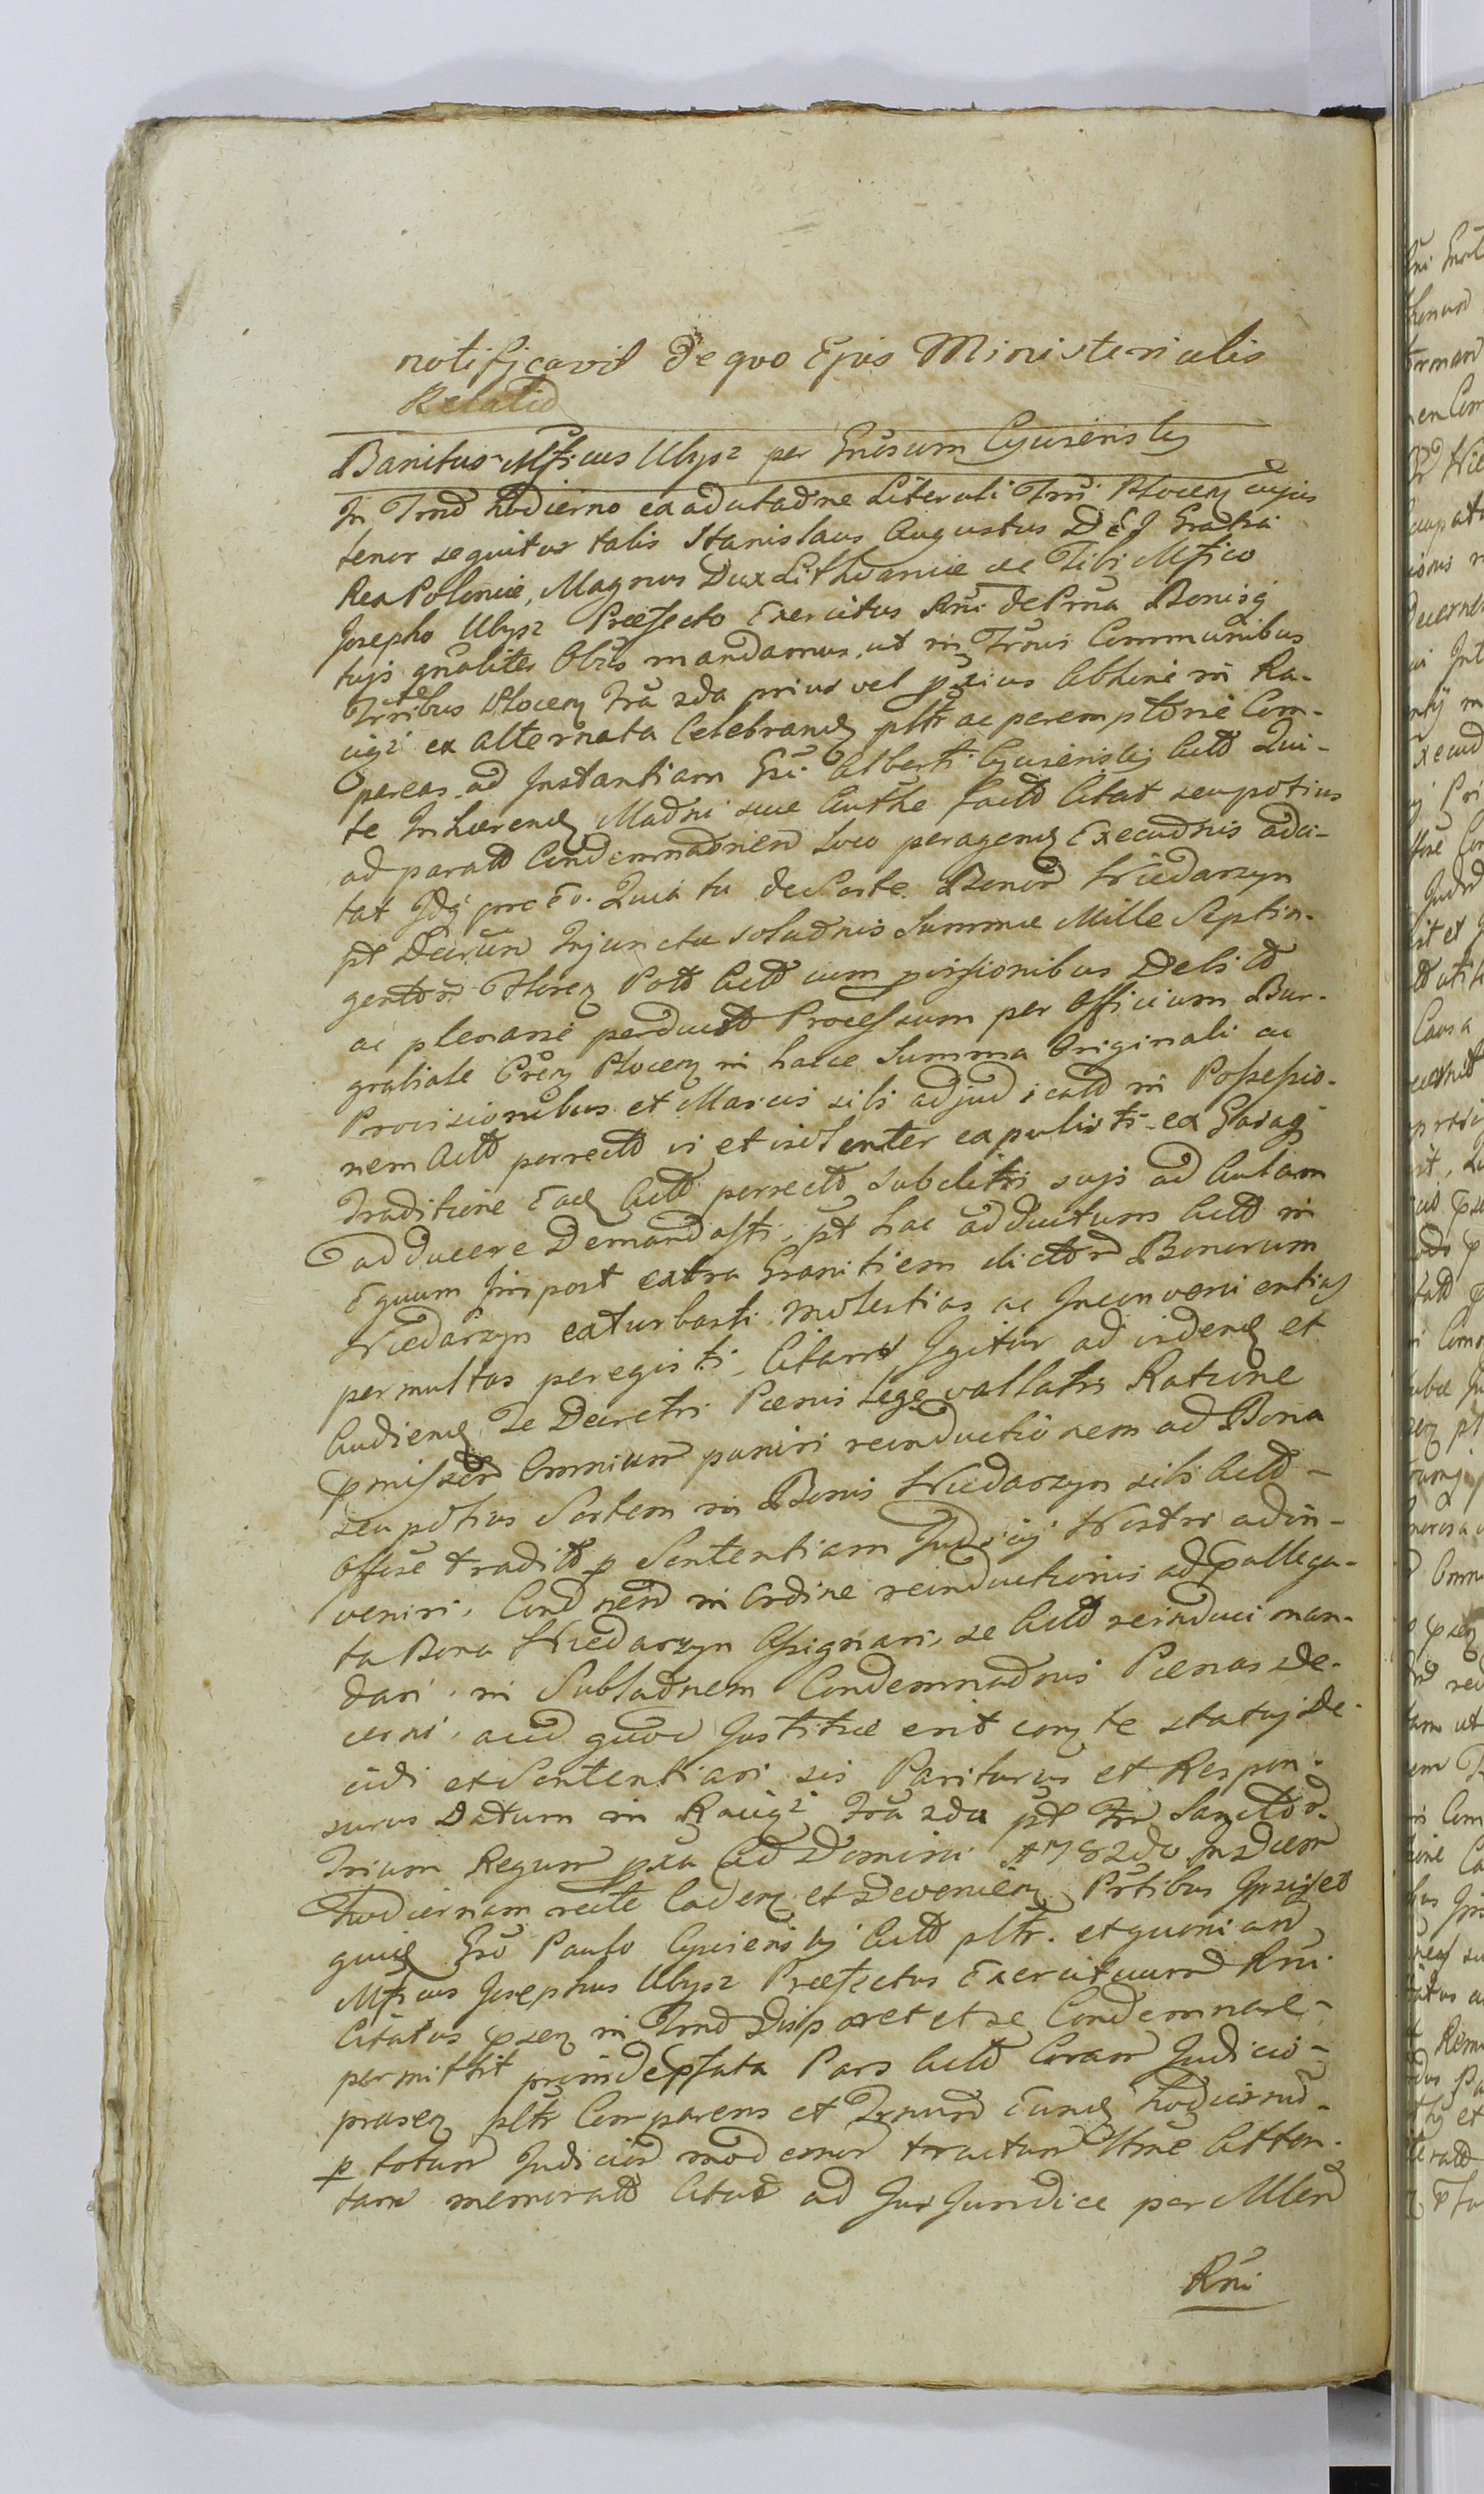 notificavit de quo Ejus Ministerialis
Relatio
Banitus Mficus Ulysz per Gnosum Cyvienski
In Tmno hodierno ex adcitaõne Literali Trri Plocen cujus
tenor sequitur talis Stanislaus Augustus D E I Gratia
Rex Poloniæ, Magnus Dux Lithvaniæ &c Tibi Mfico
Josepho Ulysz Præfecto Exercitus Rni de Prna Bonisq
tuis gnaliter Obus mandamus, ut in Trmis Communibus
Trribus Plocen fra 2da prius vel pxius Abhinc in Ra-
cigż ex alternata Celebrand pltr ac peremptorie Com-
pareas ad Instantiam Gsi Alberti Cyvienski Actt Qui
te Inhærend Madni suæ Authe factt Citat seu potius
ad paratt Condemnaõnem loco peragend Execuõnis adci-
tat Idq pro eo. Quia tu de Sorte Bonor Niedarzyn
pt Decrum Injunctæ soluõnis Summæ Mille Septin-
gentor Floren Poll Actt cum pvisionibus Debitt
ac plenarie perductt Processum per Officium Bur-
grabiale Cren Plocen in hacce Summa Originali ac
Provisionibus et Marcis sibi adjudicatt in Possessio-
nem Actt porrectt vi et violenter expulisti ex
Traditione Ead Actt porrectt Subditis suis ad Aulam
adducere Demandasti, pt hac adductum Actt in
Equum Impost extra Granitiem dictor Bonorum
Niedarzyn exturbasti, molestias ac Inconvenientias
permultas peregisti, Citamr Igitur ad vidend et
Audiend Te Decretri Pænis Lege vallatis Ratione
pmissor Omnium puniri reinductionem ad Bona
seu potius Sortem in Bonis Niedarzyn sibi Actt
Offose traditt p Sententiam Judicij Nostri adin-
veniri. Cond nend in Ordine reinductionis ad pallega-
ta Bona Niedarzyn Assignari, se Actt reinduci man-
dari. in Sublaõnem Condemnaõnis Pænas de-
cerni, aliud quod Justitiæ erit con te statuj de-
cidi et Sententiari sis Pariturus et Respon-
surus Datum in Racigż fra 2da pt Fr Sanctor
Trium Regum pxa Ad Domini 1782do In Diem
hodiernam recte Caden et Devenien Prtibus Ipsis et
quid Gro Paulo Cyvienski Actt pltr. et quoniam
Mficus Josephus Ulysz Præfectus Exercituum Rni
Citatus psen in Tmno Disparet et se Condemnare
permittit proinde pfata Pars Actt Coram Judicio
prasen pltr Comparens et Trnum Eund hodiernu
p totum Judicior modernor tractum Ttme Atten-
tam memoratt Citat ad Jus Juridice per Min
Rni